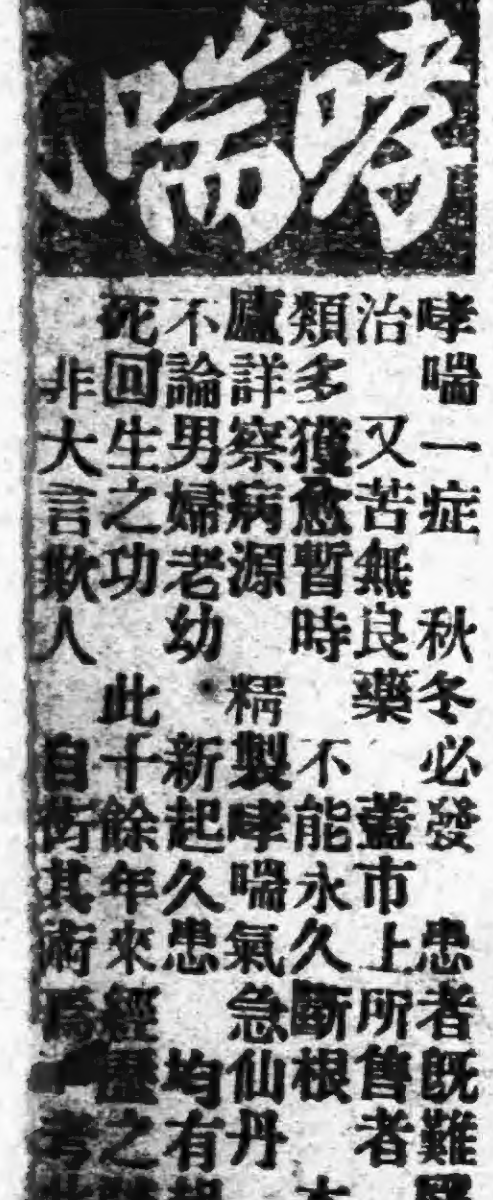 哮喘
哮喘一症　秋冬必發　患者既難
治　又苦無良藥　蓋市上所售者
類多　獲愈暫時　不能永久斷根
廬詳察病源　精製哮喘氣急仙丹
不論男婦老幼　新起久患　均有
死回生之功　此十餘年來經歷之
非大言欺人　自衒其術焉